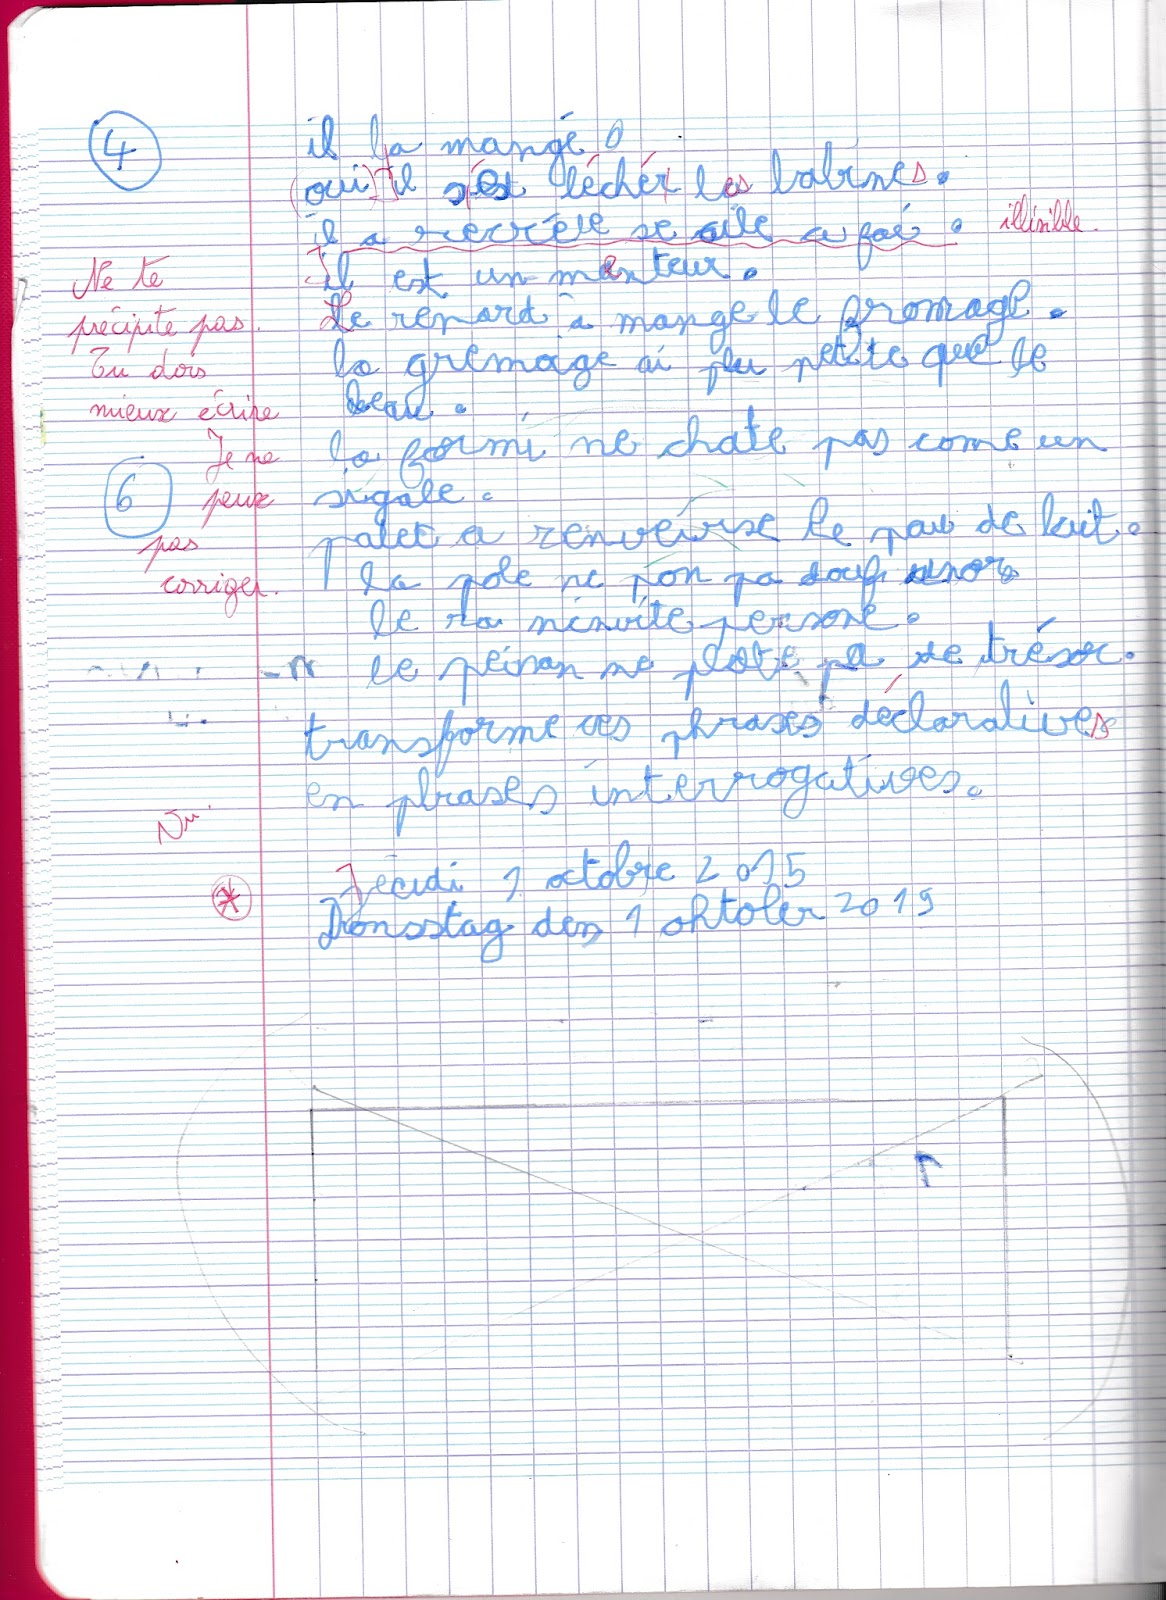 4
il la mangé
(oui) Il s'est léchér les babines.
il a recréée se aile a foé. illisible.
il est un menteur.
Ne te
précipite pas.
Tu dois
mieux écrire
Je ne
peux
pas
corriger.
Le renard à mange le fromage.
la gremaige ai plu petite que le
beau.
la formi ne chate pas come un
sigale.
6
palet a renveirse le pau de lait.
la pole ne pon pa
le ra ninvite persone.
le peisan ne pa de trésor.
transforme ces phrases déclaratives
en phrases interrogatives.
Jeudi 1 octobre 2015
Donsstag den 1 oktober 2015